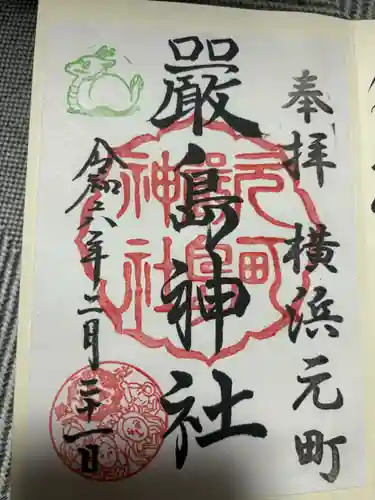 奉拝 横浜元町
嚴島神社
令和六年二月二十一日
元町
嚴島
神社